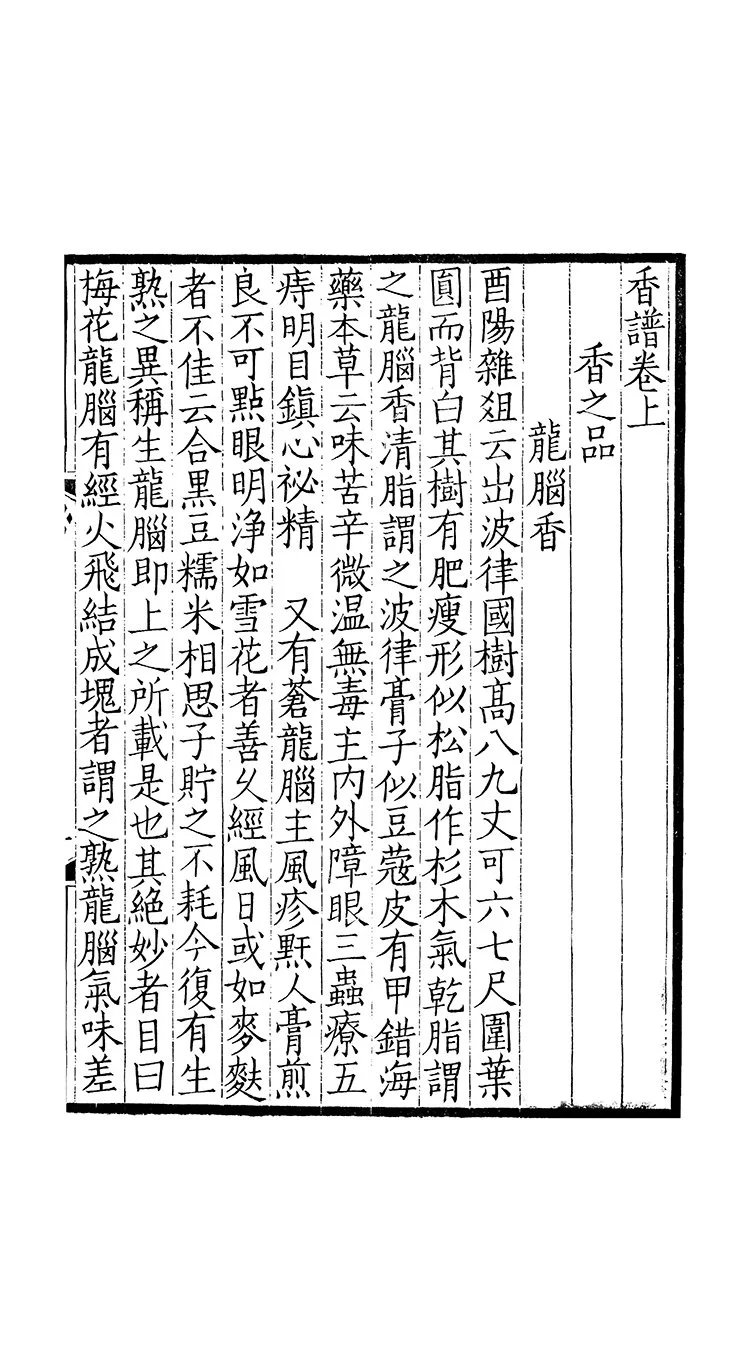 香譜卷上
香之品
龍腦香
酉陽雜俎云出波律國樹髙八九丈可六七尺圍葉
圓而背白其樹有肥瘦形似松脂作杉木氣乾脂謂
之龍腦香清脂謂之波律膏子似豆蔻皮有甲錯海
藥本草云味苦辛微温無毒主内外障眼三蟲療五
痔明目鎮心祕精　又有蒼龍腦主風疹䵟人膏煎
良不可點眼明浄如雪花者善乆經風日或如麥麩
者不佳云合黒豆糯米相思子貯之不耗今復有生
熟之異稱生龍腦即上之所載是也其絶妙者目曰
梅花龍腦有經火飛結成塊者謂之熟龍腦氣味差